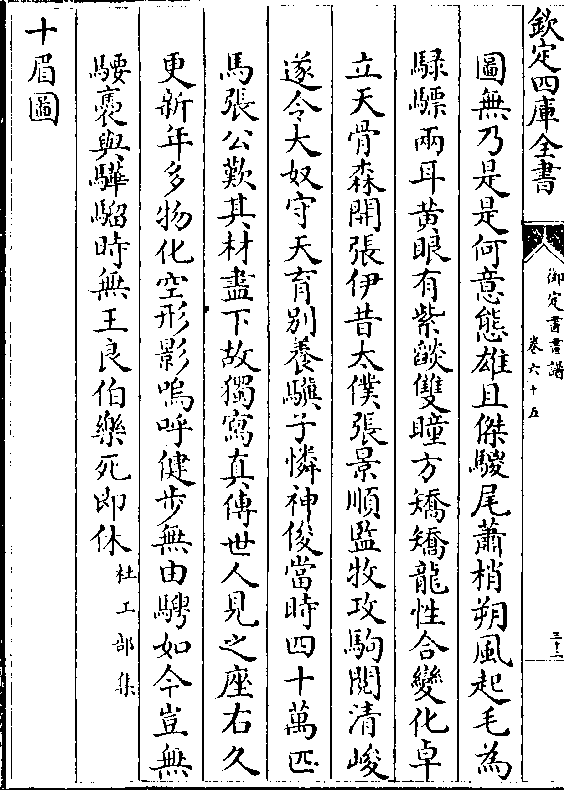 欽定四庫全書
御定書畫譜
卷六十五
三十二
圖無乃是是何意態雄且傑騣尾蕭梢朔風起毛為
騄驃兩耳黃眼有紫燄雙瞳方矯矯龍性合變化卓
立天骨森開張伊昔太僕張景順監牧攻駒閱清峻
遂令大奴守天育別養驥子憐神俊當時四十萬匹
馬張公歎其材盡下故獨寫真傳世人見之座右久
更新年多物化空形影嗚呼健步無由騁如今豈無
騕褭與驊騮時無王良伯樂死即休杜工部集
十眉圖